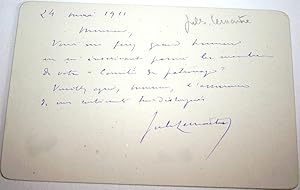 24 mai 1911
Jules Lemaitre
Monsieur,
Vous me faites grand honneur
en m'inscrivant parmi les membres
de votre "Comité de patronage"
Veuillez agréer, monsieur, l'assurance
de mes sentiments très distingués
Jules Lemaître